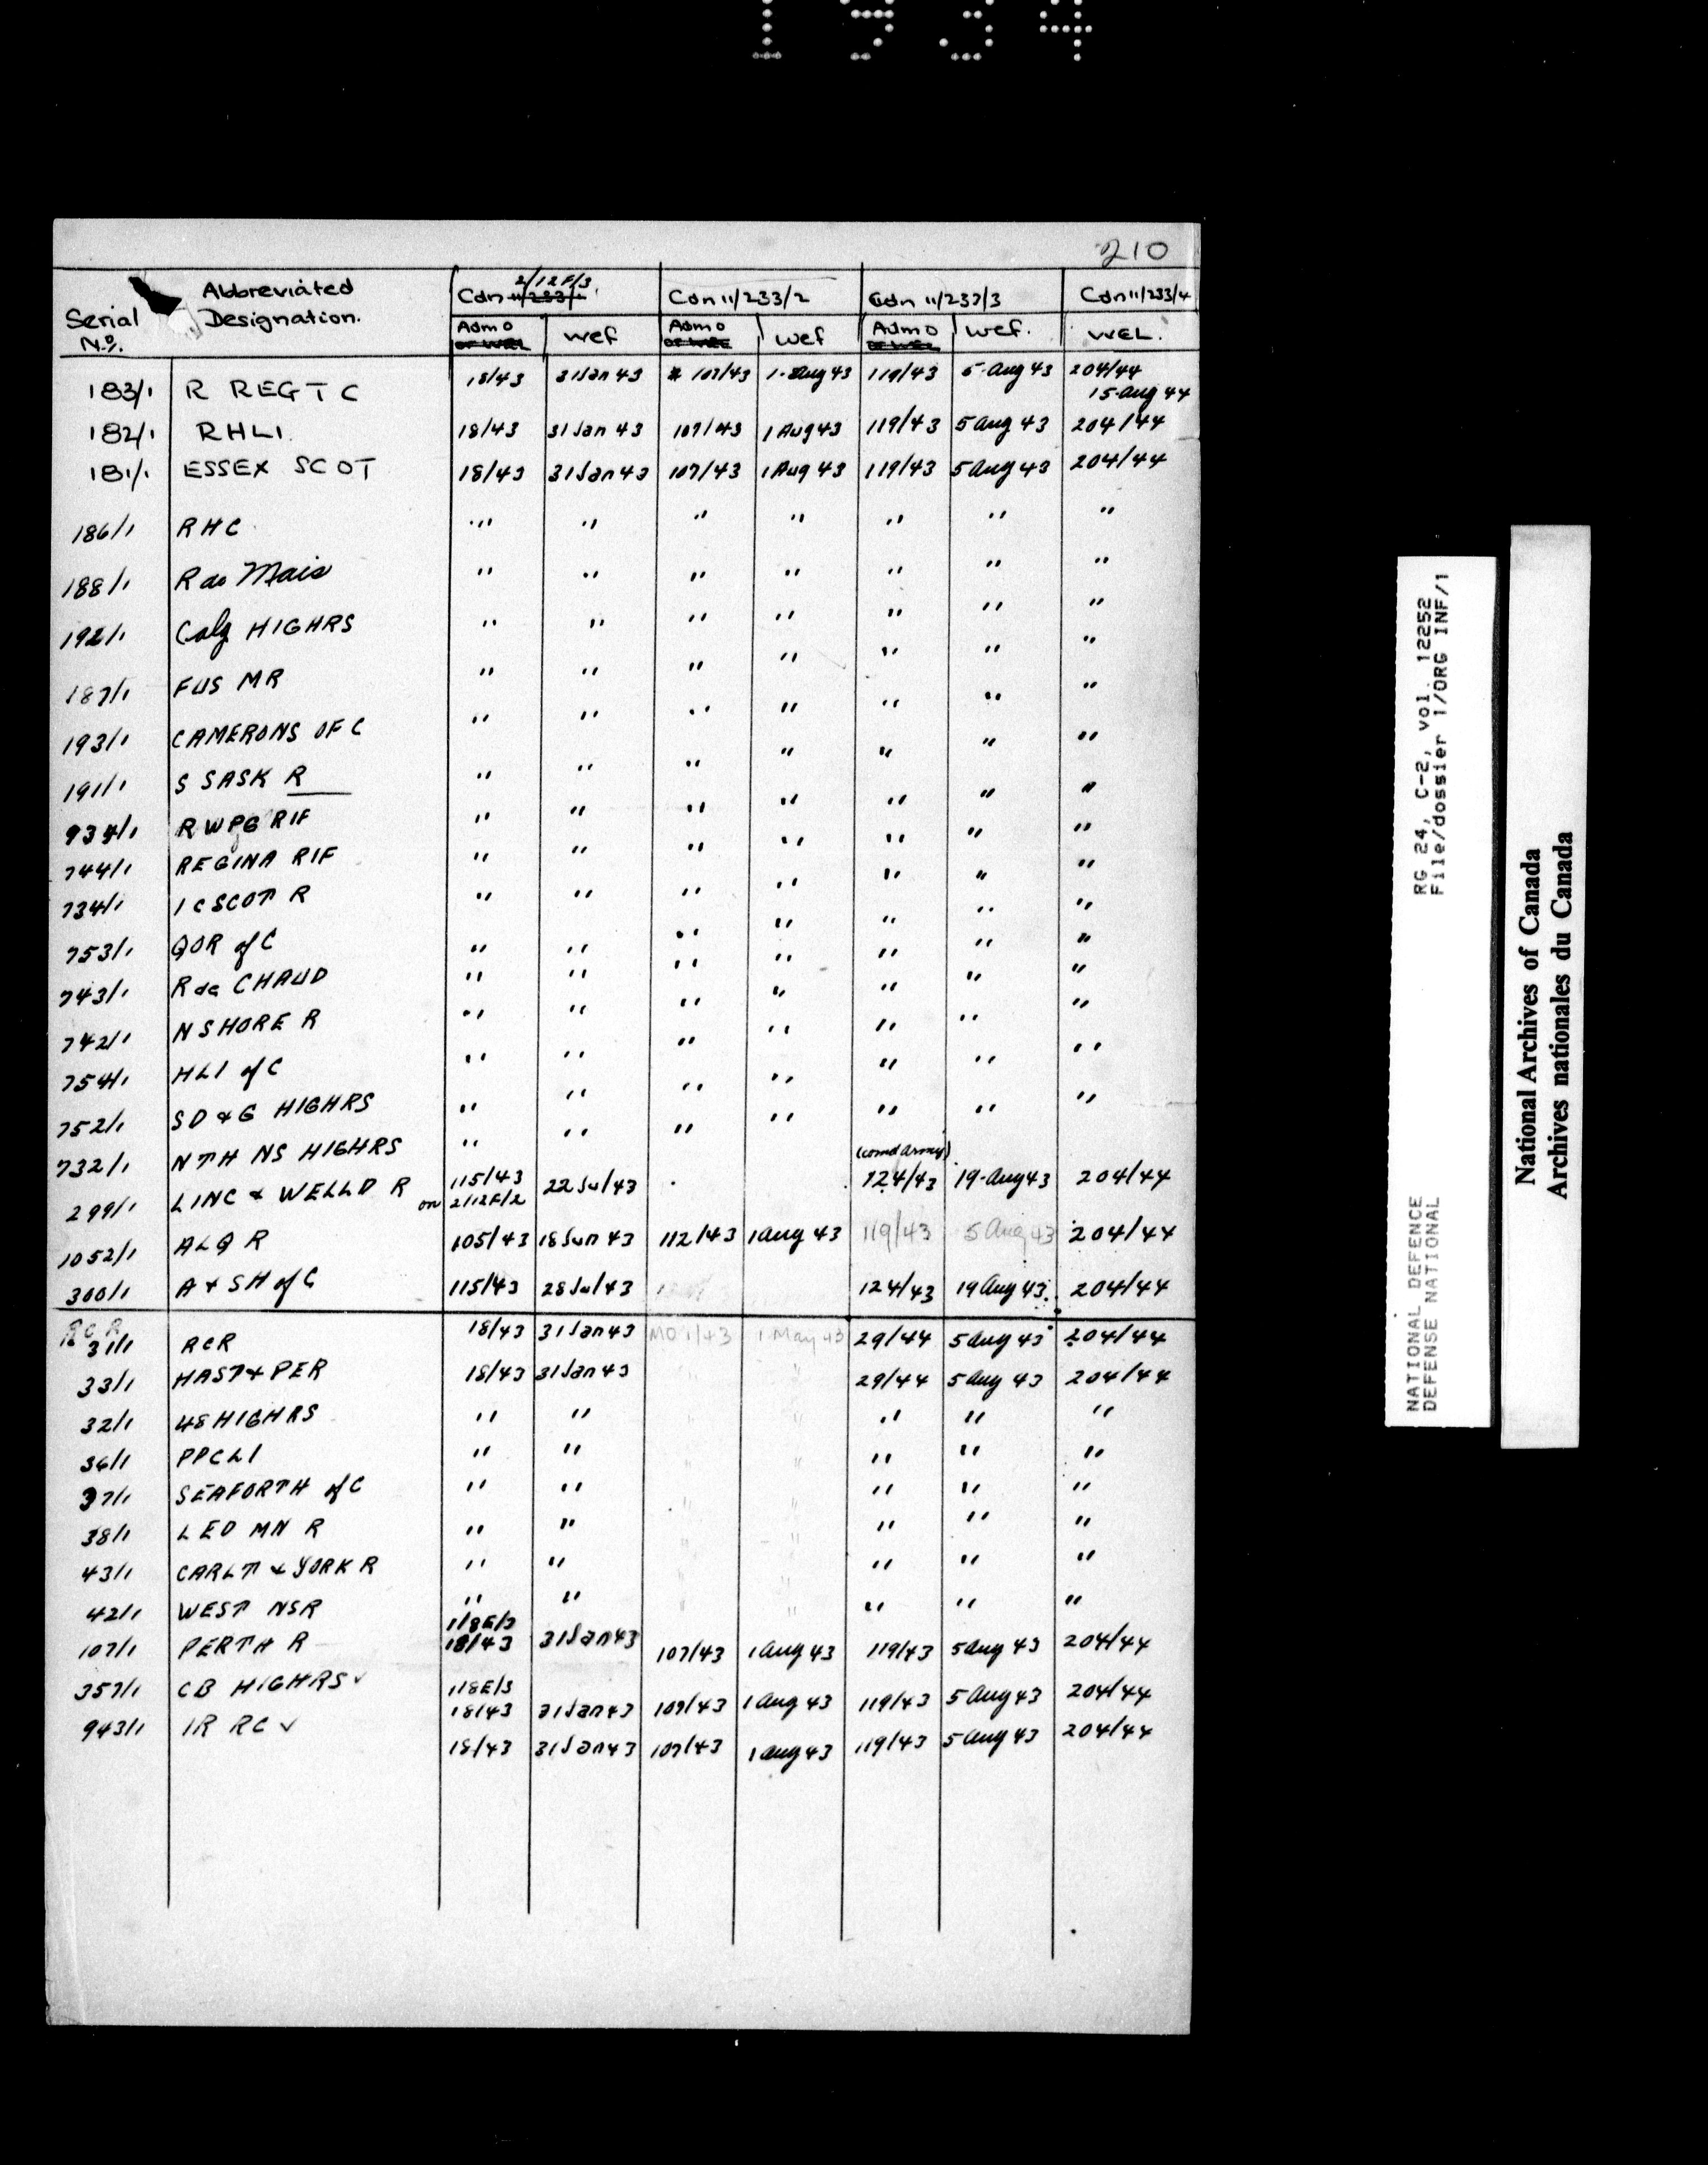 1934
210
Serial No. Abbreviated Designation. Cdn 11/233/1 2/12F/3 Cdn 11/233/2 Cdn 11/233/3 Cdn 11/233/4
Adm O or WEL wef Adm O or WEL wef Adm O or WEL wef. WEL.
183/1 R REGT C 18/43 31 Jan 43 107/43 1-Aug 43 119/43 5-Aug 43 204/44
15-Aug 44
182/1 RHLI. 18/43 31 Jan 43 107/43 1 Aug 43 119/43 5 Aug 43 204/44
181/1 ESSEX SCOT 18/43 31 Jan 43 107/43 1 Aug 43 119/43 5 Aug 43 204/44
186/1 RHC " " " " " " "
188/1 R de Mais " " " " " " "
192/1 Calg HIGHRS " " " " " " "
187/1 FUS MR " " " " " " "
193/1 CAMERONS OF C " " " " " " "
191/1 S SASK R " " " " " " "
934/1 R WPG RIF " " " " " " "
744/1 REGINA RIF " " " " " " "
734/1 1 C SCOT R " " " " " " "
753/1 QOR of C " " " " " " "
743/1 R de CHAUD " " " " " " "
742/1 N SHORE R " " " " " " "
754/1 HLI of C " " " " " " "
752/1 SD & G HIGHRS " " " " " " "
732/1 NTH NS HIGHRS " " " "
(comd army)
299/1 LINC & WELLD R 115/43 on 2/12F/2 22 Jul 43 124/43 19-Aug 43 204/44
1052/1 ALQ R 105/43 18 Jun 43 112/43 1 Aug 43 119/43 5 Aug 43 204/44
300/1 A & SH of C 115/43 28 Jul 43 124/43 19 Aug 43. 204/44
RCR
31/1 RCR 18/43 31 Jan 43 1 May 43 29/44 5 Aug 43 204/44
33/1 HAST & PER 18/43 31 Jan 43 " " 29/44 5 Aug 43 204/44
32/1 48 HIGHRS " " " " " " "
36/1 PPCLI " " " " " " "
37/1 SEAFORTH of C " " " " " " "
38/1 LED MN R " " " " " " "
43/1 CARLT & YORK R " " " " " " "
42/1 WEST NSR " " " " " " "
107/1 PERTH R 1/8E/3 18/43 31 Jan 43 107/43 1 Aug 43 119/43 5 Aug 43 204/44
357/1 CB HIGHRS ✓ 1/8E/3 18/43 31 Jan 43 107/43 1 Aug 43 119/43 5 Aug 43 204/44
943/1 IR RC ✓ 18/43 31 Jan 43 107/43 1 Aug 43 119/43 5 Aug 43 204/44
RG 24, C-2, vol. 12252
File/dossier 1/ORG INF/1
NATIONAL DEFENCE
DEFENSE NATIONAL
National Archives of Canada
Archives nationales du Canada